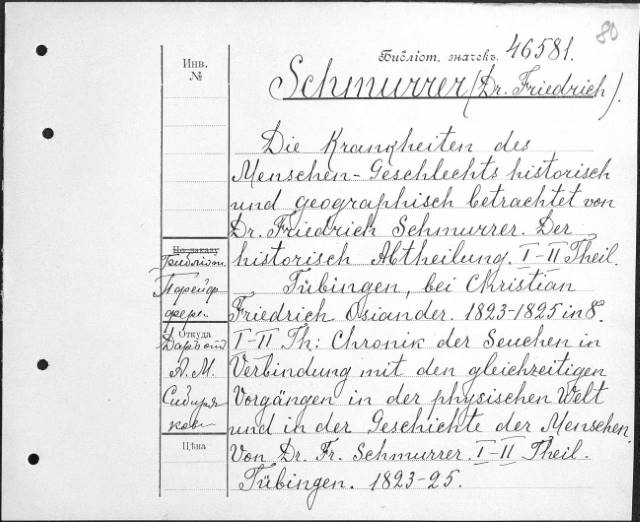 80
Библіот. значекъ. 46581.
Инв.
№
Schmurrer (Dr. Friedrich).
Die Krankheiten des
Menschen-Geschlechts historisch
und geographisch betrachtet von
Dr. Friedrich Schmurrer. Der
По заказу
historisch Abtheilung. I-II Theil.
Tübingen, bei Christian
Friedrich Osiander. 1823-1825 in 8.
Откуда
I-II Th: Chronik der Seuchen in
Даръ отъ
Verbindung mit den gleichzeitigen
А. М.
Vorgängen in der physischen Welt
Сибиря-
кова
und in der Geschichte der Menschen.
Цѣна
Von Dr. Fr. Schmurrer. I-II Theil.
Tübingen. 1823-25.